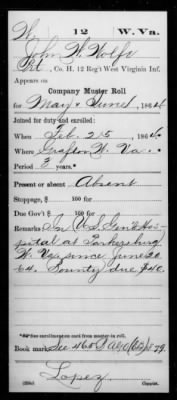 W 12 W. Va.
John W. Wolfe
Pvt., Co. H, 12 Reg't West Virginia Inf.
Appears on
Company Muster Roll
for May & June, 1864
Joined for duty and enrolled:
When Feb. 25, 1864
Where Grafton W. Va.
Period 3 years.*
Present or absent Absent
Stoppage, $ 100 for
Due Gov't $ 100 for
Remarks: In U.S. Gen'l Hos-
pital at Parkersburg
W. Va. since June 20
64. Bounty due $40.
*See enrollment card from muster-in roll.
Book mark: See 460
Lopez
Copyist.